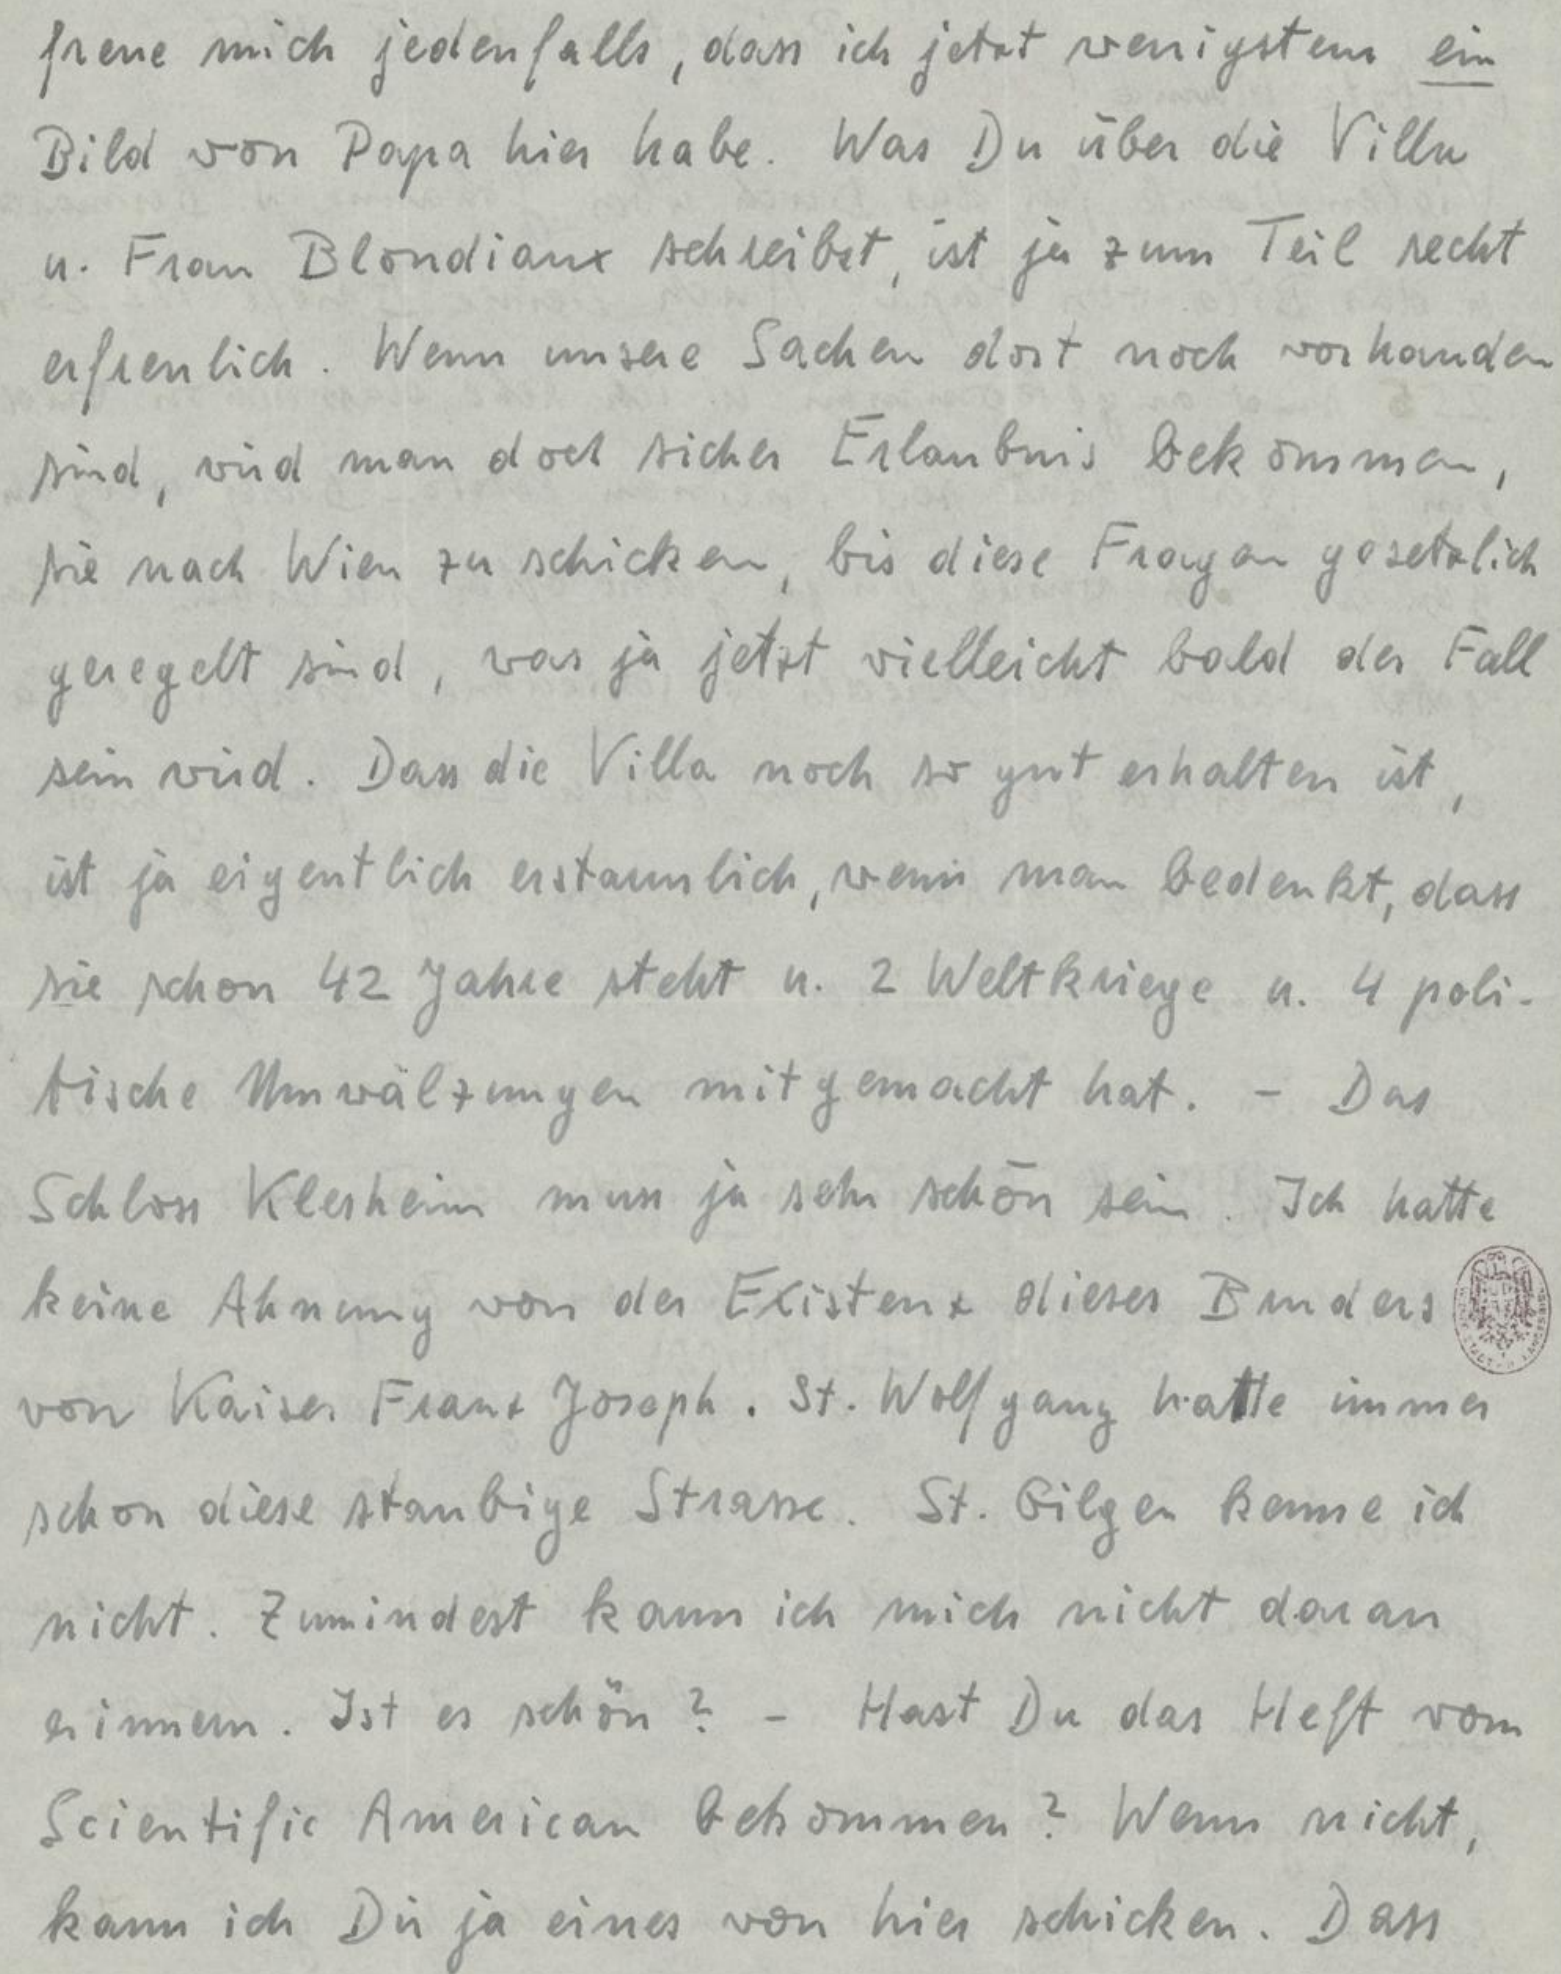 freue mich jedenfalls, dass ich jetzt wenigstens ein
Bild von Papa hier habe. Was Du über die Villa
u. Frau Blondiaux schreibst, ist ja zum Teil recht
erfreulich. Wenn unsere Sachen dort noch vorhanden
sind, wird man doch sicher Erlaubnis bekommen,
sie nach Wien zu schicken, bis diese Fragen gesetzlich
geregelt sind, was ja jetzt vielleicht bald der Fall
sein wird. Dass die Villa noch so gut erhalten ist,
ist ja eigentlich erstaunlich, wenn man bedenkt, dass
sie schon 42 Jahre steht u. 2 Weltkriege u. 4 poli-
tische Umwälzungen mitgemacht hat. – Das
Schloss Klesheim muss ja sehr schön sein. Ich hatte
keine Ahnung von der Existenz dieses Bruders
von Kaiser Franz Joseph. St. Wolfgang hatte immer
schon diese staubige Strasse. St. Gilgen kenne ich
nicht. Zumindest kann ich mich nicht daran
erinnern. Ist es schön? – Hast Du das Heft vom
Scientific American bekommen? Wenn nicht,
kann ich Dir ja eines von hier schicken. Dass